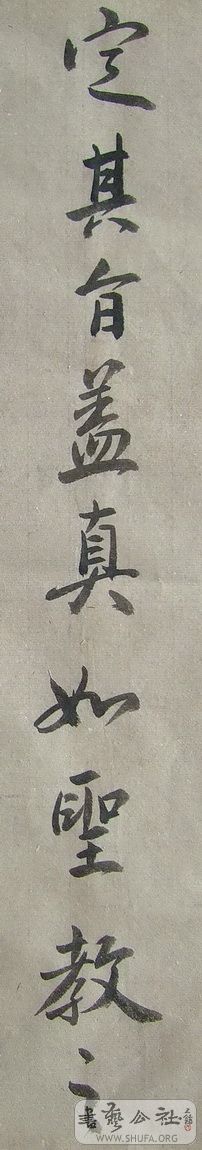 定其旨盖真如聖教之
書藝公社
WWW.SHUFA.ORG